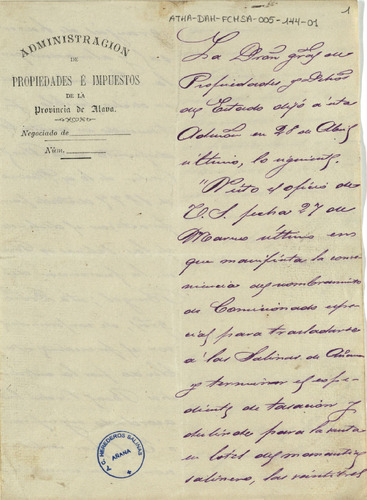 ATHA-DAH-FCHSA-005-144-01
1
ADMINISTRACION
DE
PROPIEDADES É IMPUESTOS
DE LA
Provincia de Alava.
Negociado de
Núm.
La Dirón gral de
Propiedades y Dchos
del Estado dijo á esta
Admón en 28 de Abril
último, lo siguiente.
"Visto el oficio de
V.S. fecha 27 de
Marzo último en
que manifiesta la
de nombramiento
de Comisionado espe
cial para trasladarse
á las Salinas de Añana
y terminar el espe
diente de tasación y
deslinde para la venta
en lotes del manantial
salinero, las
C.G. HEREDEROS SALINAS
AÑANA